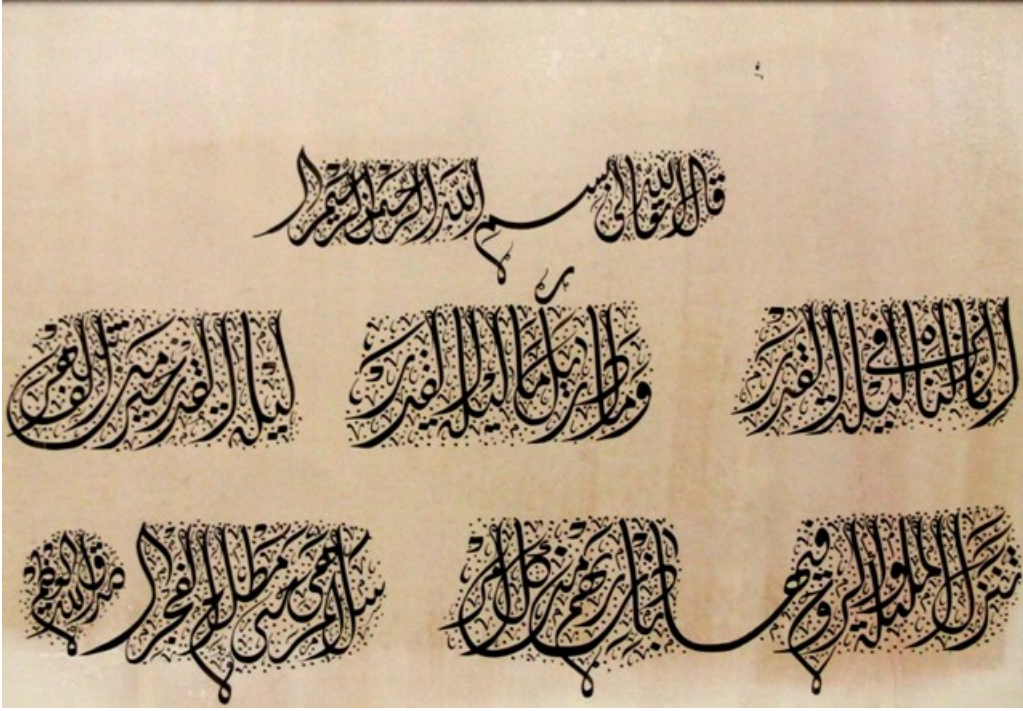 قال الله تعالى بسم الله الرحمن الرحيم
إنا أنزلناه في ليلة القدر وما أدراك ما ليلة القدر ليلة القدر خير من ألف شهر
تنزل الملئكة والروح فيها بإذن ربهم من كل أمر سلام هي حتى مطلع الفجر صدق الله العظيم